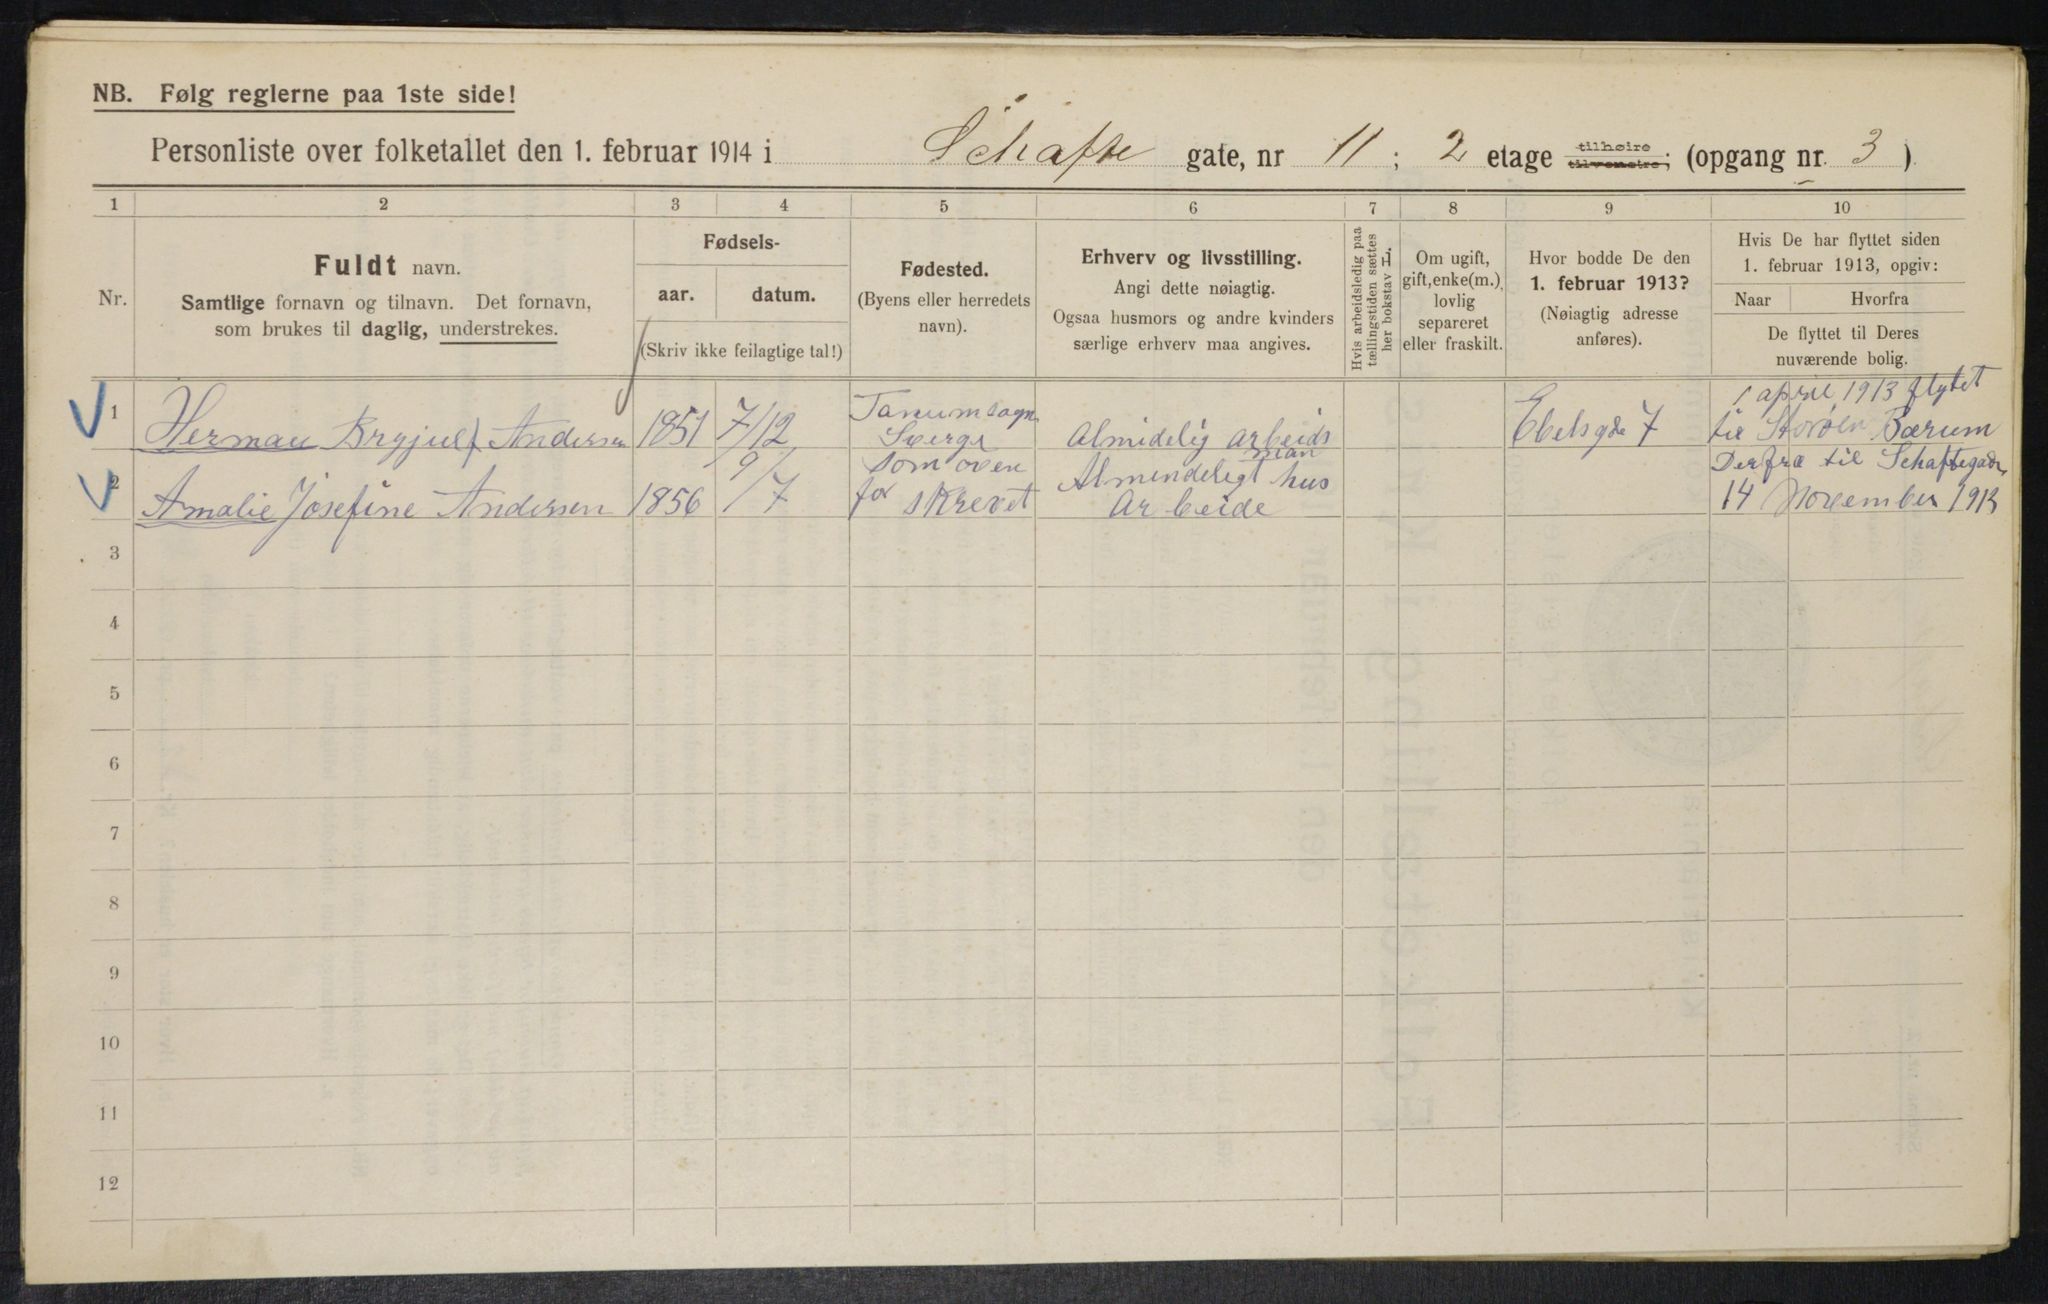 NB. Følg reglerne paa 1ste side!
Personliste over folketallet den 1. februar 1914 i Schafte gate, nr 11; 2 etage tilhøire tilvenstre; (opgang nr. 3)
1 2 3 4 5 6 7 8 9 10
Nr.
Fuldt navn.
Samtlige fornavn og tilnavn. Det fornavn,
som brukes til daglig, understrekes.
Fødsels-
aar. datum.
(Skriv ikke feilagtige tal!)
Fødested.
(Byens eller herredets
navn).
Erhverv og livsstilling.
Angi dette nøiagtig.
Ogsaa husmors og andre kvinders
særlige erhverv maa angives.
Hvis arbeidsledig paa
tællingstiden sættes
her bokstav L.
Om ugift,
gift, enke(m.),
lovlig
separeret
eller fraskilt.
Hvor bodde De den
1. februar 1913?
(Nøiagtig adresse
anføres).
Hvis De har flyttet siden
1. februar 1913, opgiv:
Naar Hvorfra
De flyttet til Deres
nuværende bolig.
1 Herman Bryjulf Andersen 1851 7/12 Tanumsogn Sverge Almidelig arbeids man Ebelsgde 7 1 april 1913 flytet
til Storøen Bærum
2 Amalie Josefine Andersen 1856 9/7 som oven for skrevet Almindeligt hus Arbeide Derfra til Schaftegaden
14 November 1913
3
4
5
6
7
8
9
10
11
12